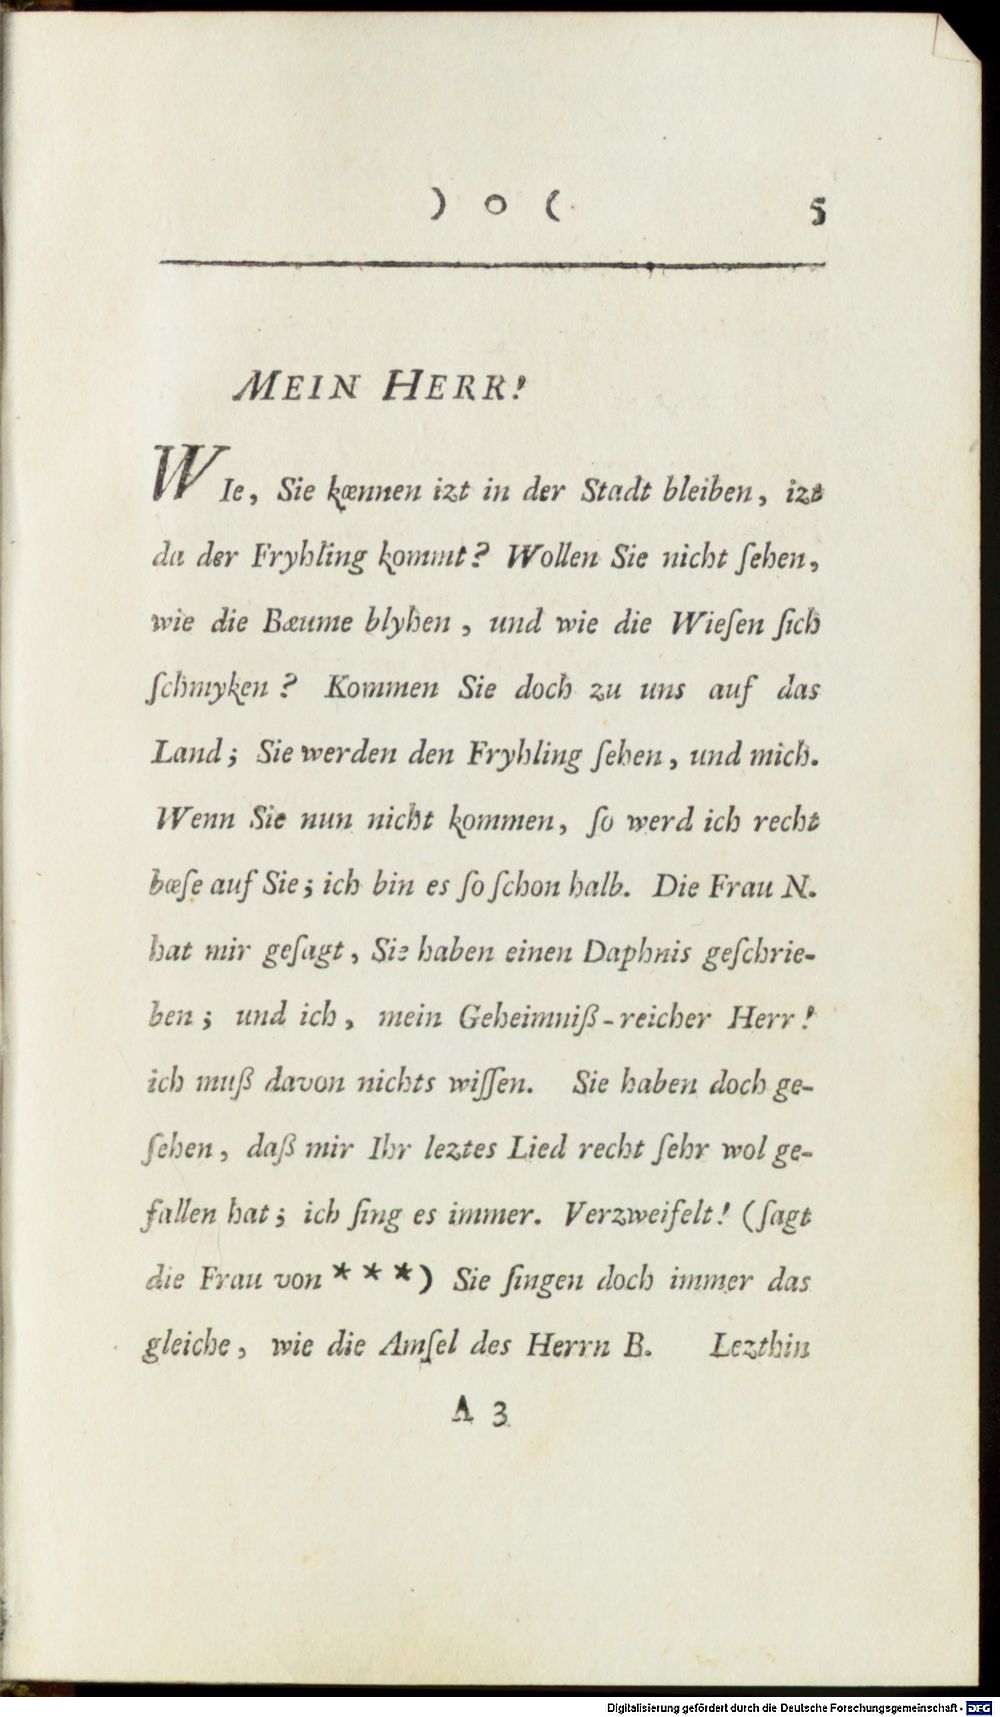 ) o ( 5
MEIN HERR!
WIe, Sie kœnnen izt in der Stadt bleiben, izt
da der Fryhling kommt? Wollen Sie nicht ſehen,
wie die Bæume blyhen, und wie die Wieſen ſich
ſchmyken? Kommen Sie doch zu uns auf das
Land; Sie werden den Fryhling ſehen, und mich.
Wenn Sie nun nicht kommen, ſo werd ich recht
bœſe auf Sie; ich bin es ſo ſchon halb. Die Frau N.
hat mir geſagt, Sie haben einen Daphnis geſchrie-
ben; und ich, mein Geheimniß-reicher Herr!
ich muß davon nichts wiſſen. Sie haben doch ge-
ſehen, daß mir Ihr leztes Lied recht ſehr wol ge-
fallen hat; ich ſing es immer. Verzweifelt! (ſagt
die Frau von ***) Sie ſingen doch immer das
gleiche, wie die Amſel des Herrn B. Lezthin
A 3
Digitalisierung gefördert durch die Deutsche Forschungsgemeinschaft - DFG